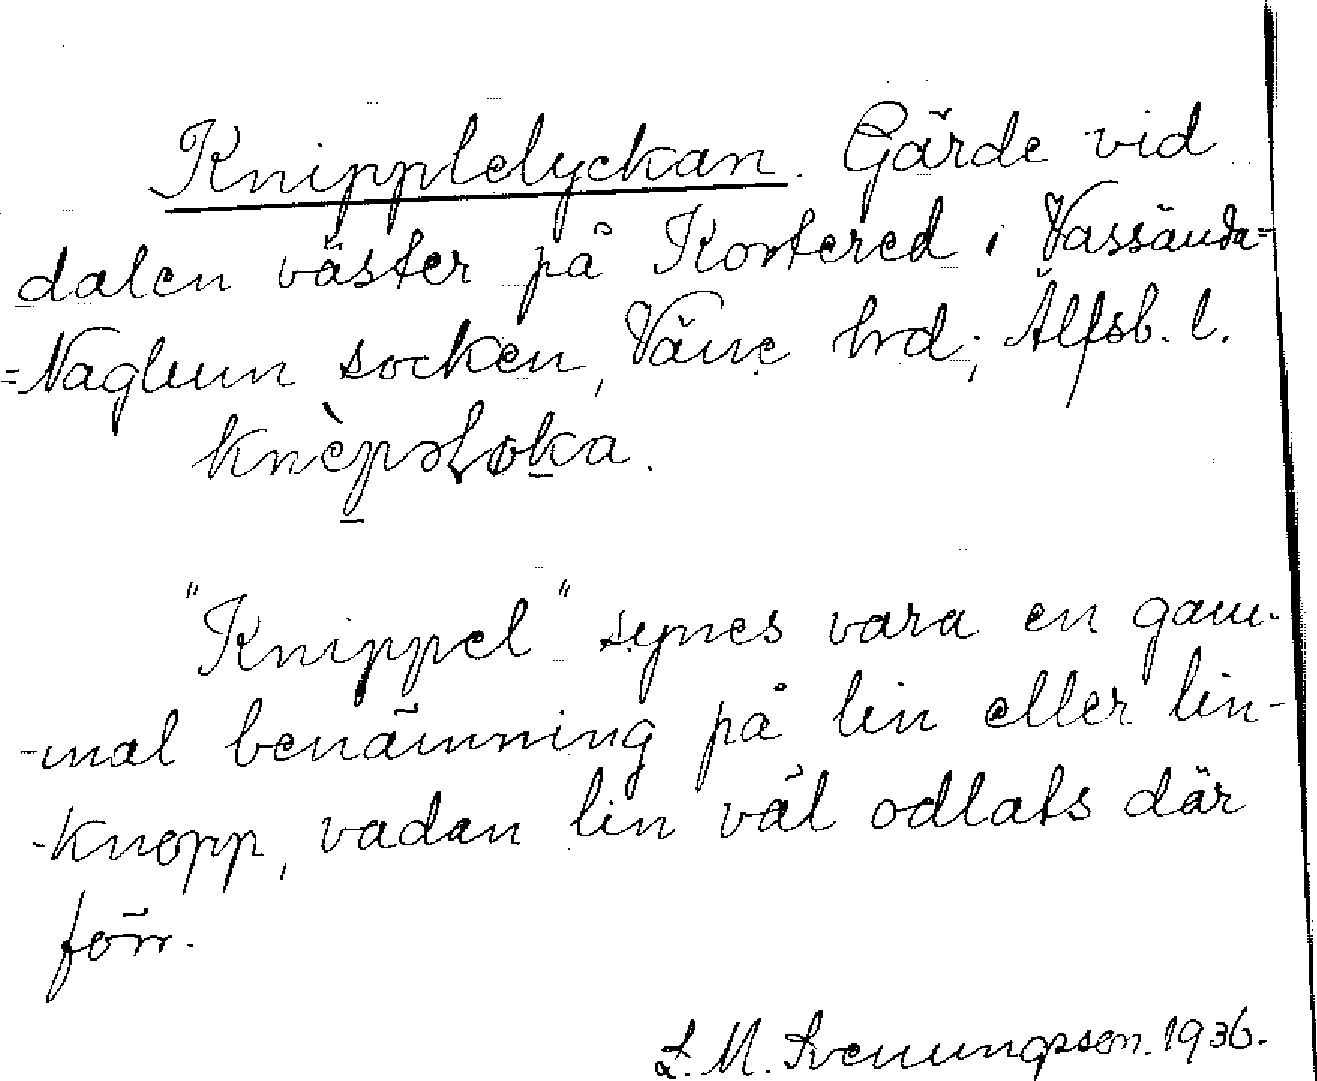 Knipplelyckan. Gärde vid
dalen väster på Kortered i Vassända=
=Naglum socken, Väne hrd; Älfsb. l.
knèpəɫøka.
"Knippel" synes vara en gam-
-mal benämning på lin eller lin-
-knopp, vadan lin väl odlats där
förr.
L. M. Svenungsson. 1936.